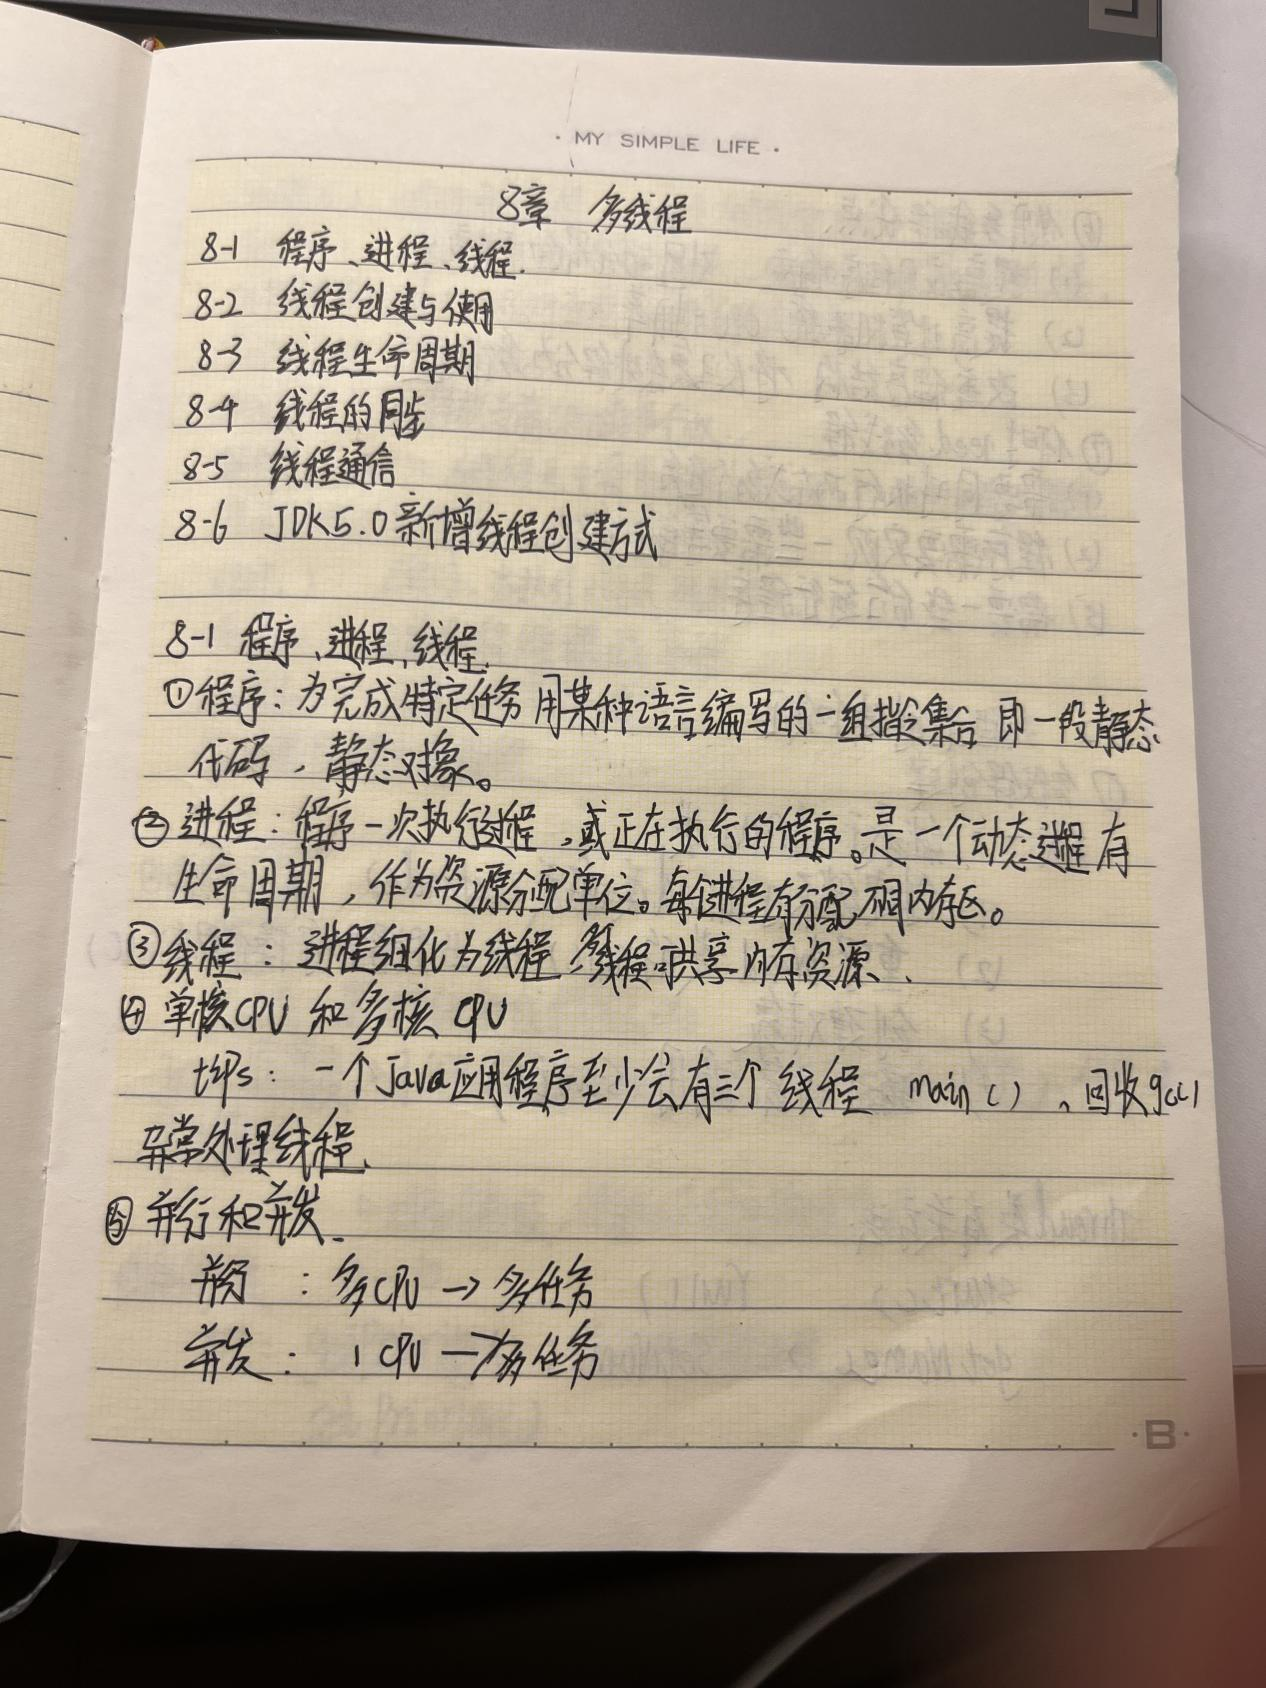 · MY SIMPLE LIFE ·
8章 多线程
8-1 程序、进程、线程.
8-2 线程创建与使用
8-3 线程生命周期
8-4 线程的同步
8-5 线程通信
8-6 JDK5.0新增线程创建方式
8-1 程序、进程、线程.
①程序：为完成特定任务 用某种语言编写的一组指令集合 即一段静态
代码，静态对像。
②进程：程序一次执行过程，或正在执行的程序。是一个动态过程 有
生命周期，作为资源分配单位。每个进程有分配不同内存区。
③线程：进程细化为线程 多线程可共享内存资源、
④单核CPU 和多核CPU
tips：一个Java应用程序至少会有三个线程 main()、回收gc()
异常处理线程、
⑤并行和并发.
并行：多CPU→多任务
并发：1CPU→多任务
·B·